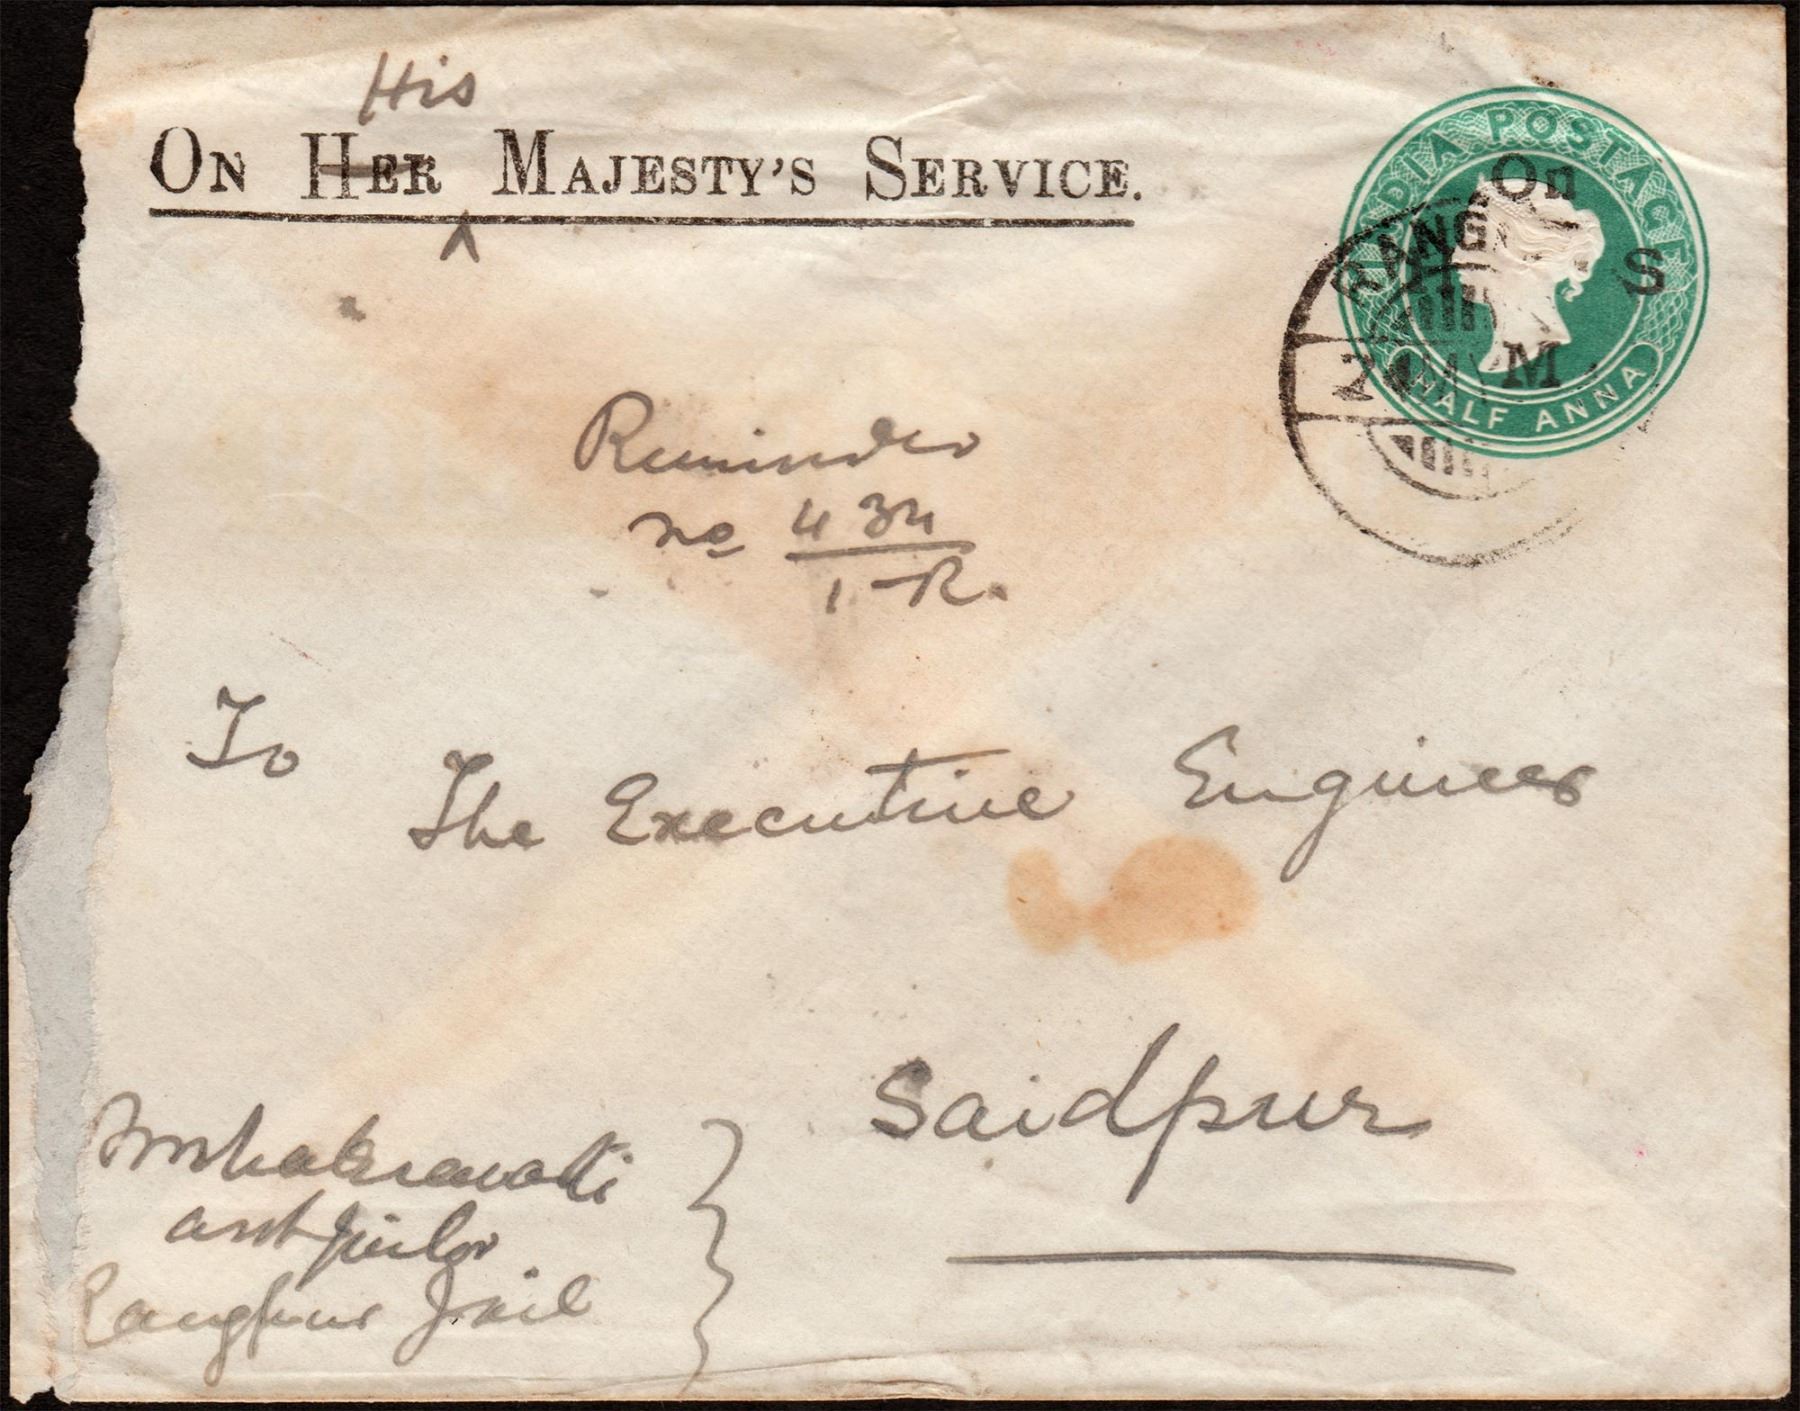 His
On Her Majesty's Service.
INDIA POSTAGE
On
S
M
HALF ANNA
RANG
Reminder
no 434
1-R.
To
The Executive Engineer
Saidpur
asst Jailor
Rangpur Jail